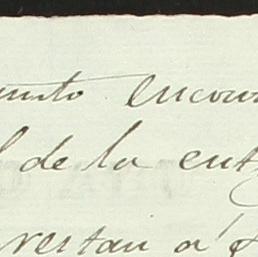 unto encon
l de la ent
restan a